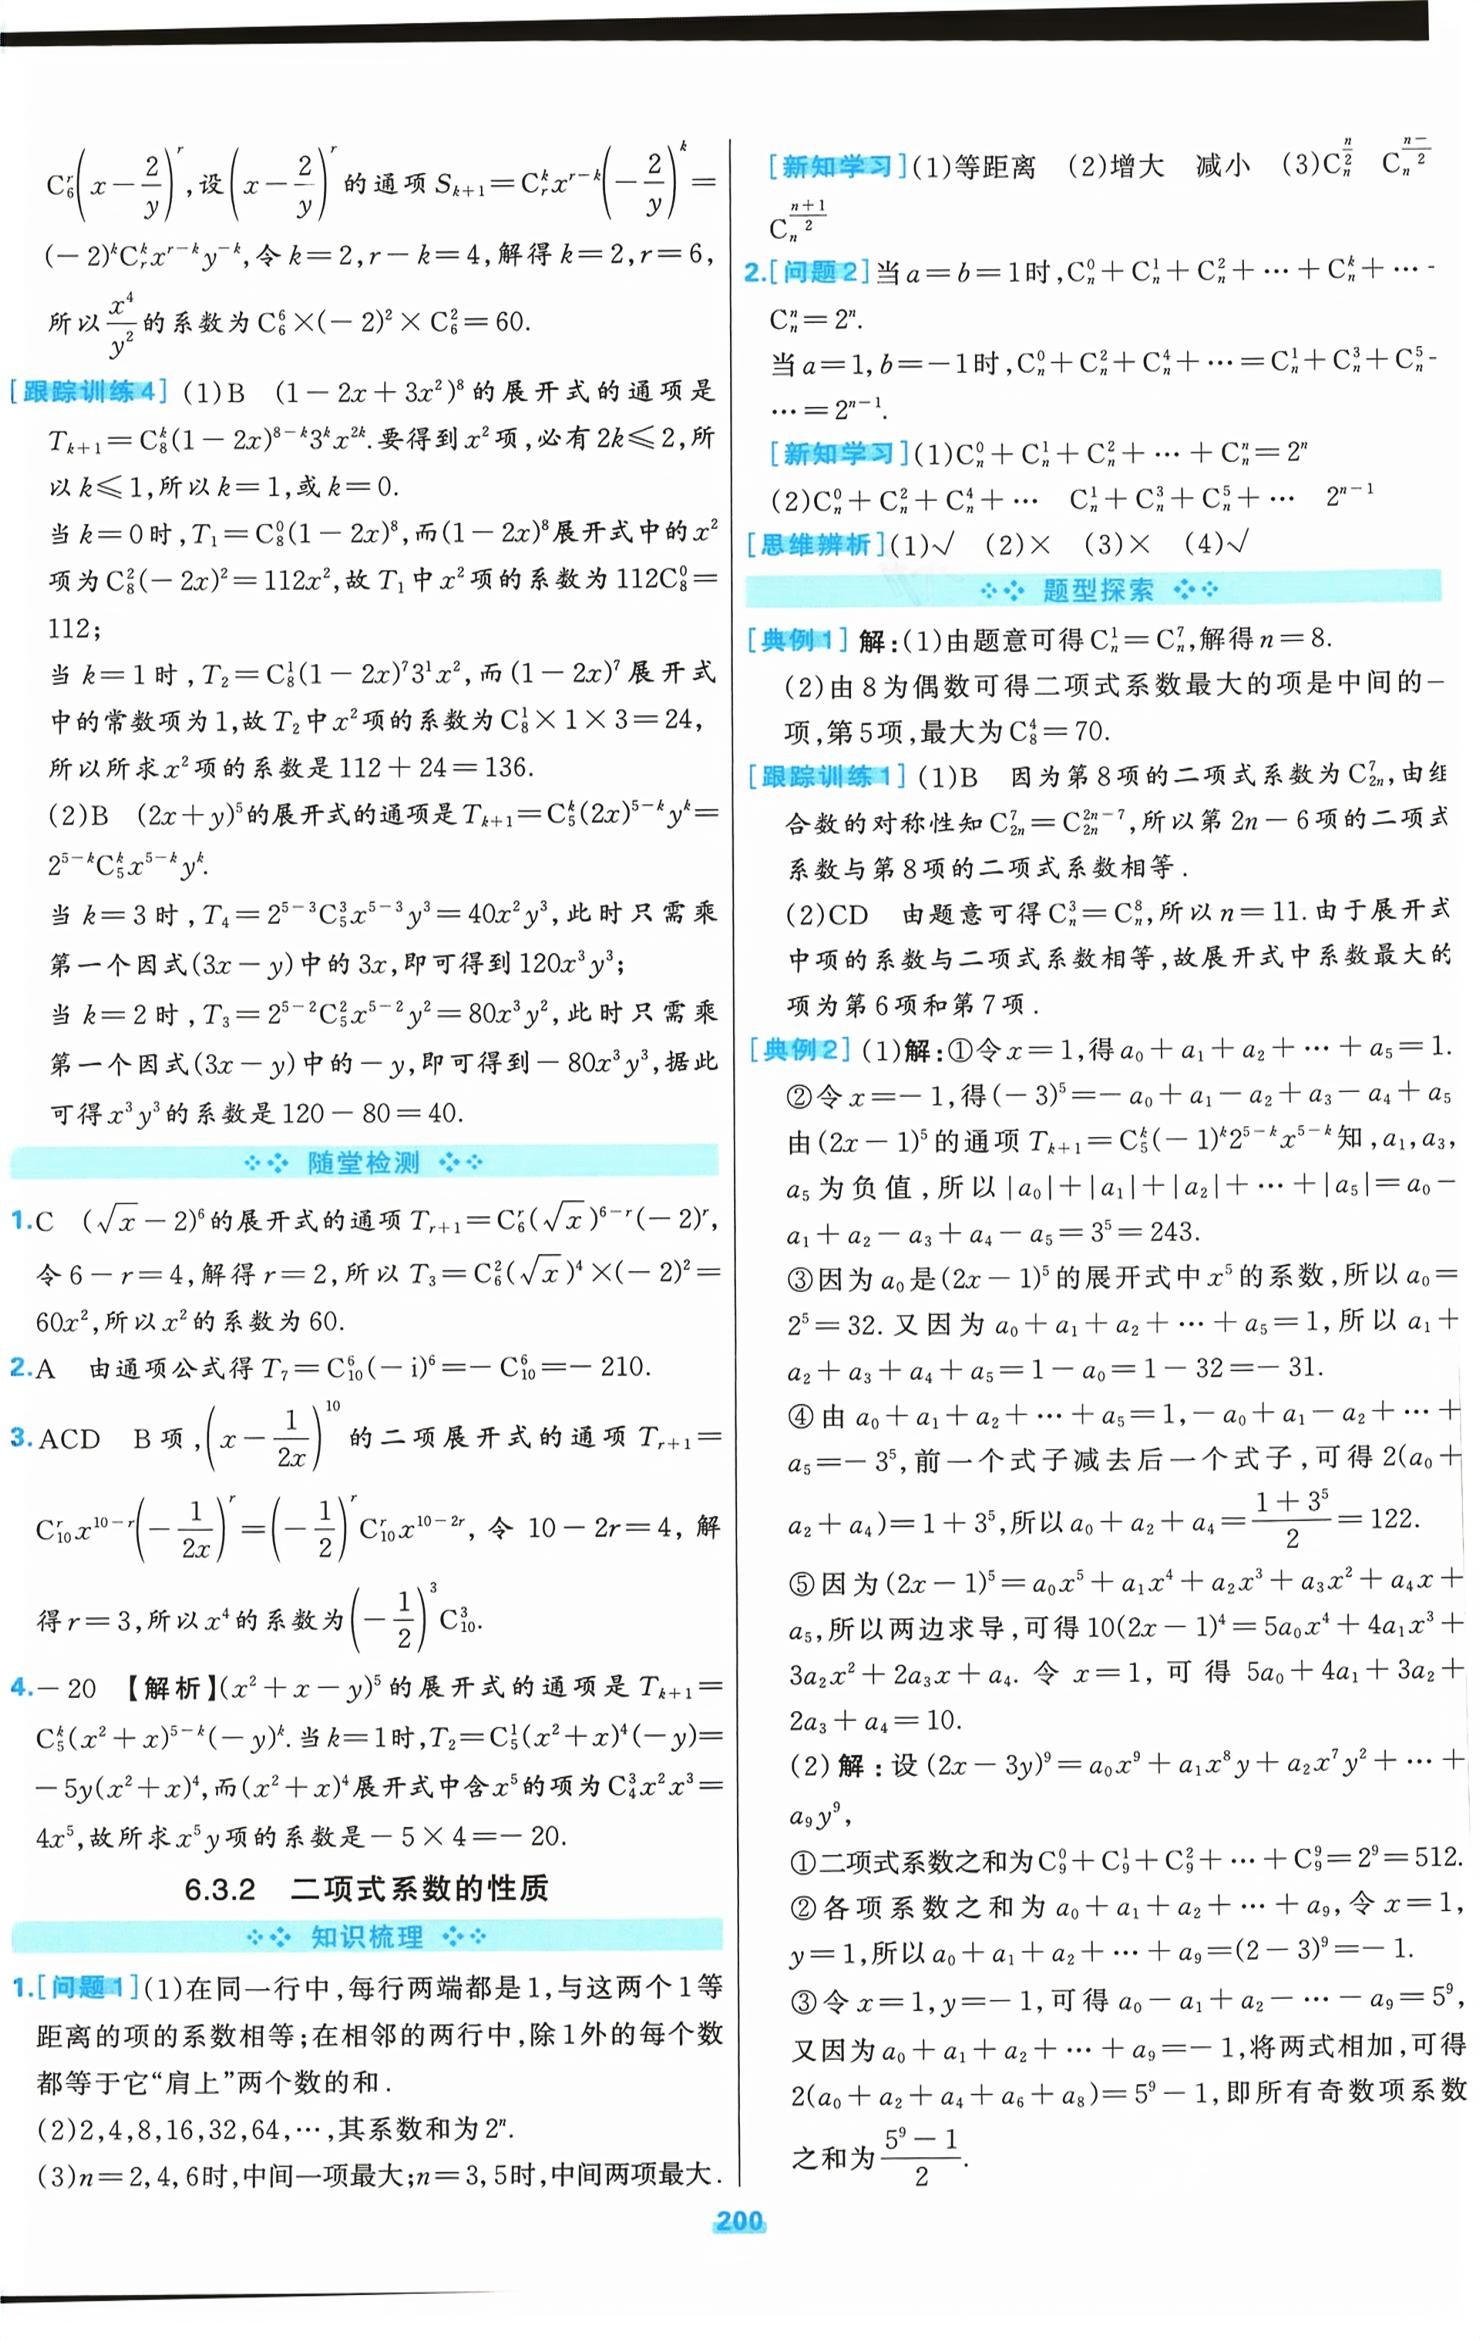 C₆ʳ(x－2/y)ʳ,设(x－2/y)ʳ的通项Sₖ₊₁＝Cᵣᵏxʳ⁻ᵏ(－2/y)ᵏ＝
(－2)ᵏCᵣᵏxʳ⁻ᵏy⁻ᵏ,令k＝2,r－k＝4,解得k＝2,r＝6,
所以x⁴/y²的系数为C₆⁶×(－2)²×C₆²＝60.
[跟踪训练4] (1)B (1－2x＋3x²)⁸的展开式的通项是
Tₖ₊₁＝C₈ᵏ(1－2x)⁸⁻ᵏ3ᵏx²ᵏ.要得到x²项,必有2k≤2,所
以k≤1,所以k＝1,或k＝0.
当k＝0时,T₁＝C₈⁰(1－2x)⁸,而(1－2x)⁸展开式中的x²
项为C₈²(－2x)²＝112x²,故T₁中x²项的系数为112C₈⁰＝
112;
当k＝1时,T₂＝C₈¹(1－2x)⁷3¹x²,而(1－2x)⁷展开式
中的常数项为1,故T₂中x²项的系数为C₈¹×1×3＝24,
所以所求x²项的系数是112＋24＝136.
(2)B (2x＋y)⁵的展开式的通项是Tₖ₊₁＝C₅ᵏ(2x)⁵⁻ᵏyᵏ＝
2⁵⁻ᵏC₅ᵏx⁵⁻ᵏyᵏ.
当k＝3时,T₄＝2⁵⁻³C₅³x⁵⁻³y³＝40x²y³,此时只需乘
第一个因式(3x－y)中的3x,即可得到120x³y³;
当k＝2时,T₃＝2⁵⁻²C₅²x⁵⁻²y²＝80x³y²,此时只需乘
第一个因式(3x－y)中的－y,即可得到－80x³y³,据此
可得x³y³的系数是120－80＝40.
随堂检测
1.C (√x－2)⁶的展开式的通项Tᵣ₊₁＝C₆ʳ(√x)⁶⁻ʳ(－2)ʳ,
令6－r＝4,解得r＝2,所以T₃＝C₆²(√x)⁴×(－2)²＝
60x²,所以x²的系数为60.
2.A 由通项公式得T₇＝C₁₀⁶(－i)⁶＝－C₁₀⁶＝－210.
3.ACD B项,(x－1/2x)¹⁰的二项展开式的通项Tᵣ₊₁＝
C₁₀ʳx¹⁰⁻ʳ(－1/2x)ʳ＝(－1/2)ʳC₁₀ʳx¹⁰⁻²ʳ,令10－2r＝4,解
得r＝3,所以x⁴的系数为(－1/2)³C₁₀³.
4.－20 【解析】(x²＋x－y)⁵的展开式的通项是Tₖ₊₁＝
C₅ᵏ(x²＋x)⁵⁻ᵏ(－y)ᵏ.当k＝1时,T₂＝C₅¹(x²＋x)⁴(－y)＝
－5y(x²＋x)⁴,而(x²＋x)⁴展开式中含x⁵的项为C₄³x²x³＝
4x⁵,故所求x⁵y项的系数是－5×4＝－20.
6.3.2 二项式系数的性质
知识梳理
1.[问题1](1)在同一行中,每行两端都是1,与这两个1等
距离的项的系数相等;在相邻的两行中,除1外的每个数
都等于它“肩上”两个数的和.
(2)2,4,8,16,32,64,…,其系数和为2ⁿ.
(3)n＝2,4,6时,中间一项最大;n＝3,5时,中间两项最大.
[新知学习](1)等距离 (2)增大 减小 (3)Cₙ^(n/2) Cₙ^(n－/2)
Cₙ^((n＋1)/2)
2.[问题2]当a＝b＝1时,Cₙ⁰＋Cₙ¹＋Cₙ²＋…＋Cₙᵏ＋…
Cₙⁿ＝2ⁿ.
当a＝1,b＝－1时,Cₙ⁰＋Cₙ²＋Cₙ⁴＋…＝Cₙ¹＋Cₙ³＋Cₙ⁵
…＝2ⁿ⁻¹.
[新知学习](1)Cₙ⁰＋Cₙ¹＋Cₙ²＋…＋Cₙⁿ＝2ⁿ
(2)Cₙ⁰＋Cₙ²＋Cₙ⁴＋… Cₙ¹＋Cₙ³＋Cₙ⁵＋… 2ⁿ⁻¹
[思维辨析](1)√ (2)× (3)× (4)√
题型探索
[典例1] 解:(1)由题意可得Cₙ¹＝Cₙ⁷,解得n＝8.
(2)由8为偶数可得二项式系数最大的项是中间的一
项,第5项,最大为C₈⁴＝70.
[跟踪训练1] (1)B 因为第8项的二项式系数为C₂ₙ⁷,由组
合数的对称性知C₂ₙ⁷＝C₂ₙ²ⁿ⁻⁷,所以第2n－6项的二项式
系数与第8项的二项式系数相等.
(2)CD 由题意可得Cₙ³＝Cₙ⁸,所以n＝11.由于展开式
中项的系数与二项式系数相等,故展开式中系数最大的
项为第6项和第7项.
[典例2] (1)解:①令x＝1,得a₀＋a₁＋a₂＋…＋a₅＝1.
②令x＝－1,得(－3)⁵＝－a₀＋a₁－a₂＋a₃－a₄＋a₅
由(2x－1)⁵的通项Tₖ₊₁＝C₅ᵏ(－1)ᵏ2⁵⁻ᵏx⁵⁻ᵏ知,a₁,a₃,
a₅为负值,所以|a₀|＋|a₁|＋|a₂|＋…＋|a₅|＝a₀－
a₁＋a₂－a₃＋a₄－a₅＝3⁵＝243.
③因为a₀是(2x－1)⁵的展开式中x⁵的系数,所以a₀＝
2⁵＝32.又因为a₀＋a₁＋a₂＋…＋a₅＝1,所以a₁＋
a₂＋a₃＋a₄＋a₅＝1－a₀＝1－32＝－31.
④由a₀＋a₁＋a₂＋…＋a₅＝1,－a₀＋a₁－a₂＋…＋
a₅＝－3⁵,前一个式子减去后一个式子,可得2(a₀＋
a₂＋a₄)＝1＋3⁵,所以a₀＋a₂＋a₄＝(1＋3⁵)/2＝122.
⑤因为(2x－1)⁵＝a₀x⁵＋a₁x⁴＋a₂x³＋a₃x²＋a₄x＋
a₅,所以两边求导,可得10(2x－1)⁴＝5a₀x⁴＋4a₁x³＋
3a₂x²＋2a₃x＋a₄.令x＝1,可得5a₀＋4a₁＋3a₂＋
2a₃＋a₄＝10.
(2)解:设(2x－3y)⁹＝a₀x⁹＋a₁x⁸y＋a₂x⁷y²＋…＋
a₉y⁹,
①二项式系数之和为C₉⁰＋C₉¹＋C₉²＋…＋C₉⁹＝2⁹＝512.
②各项系数之和为a₀＋a₁＋a₂＋…＋a₉,令x＝1,
y＝1,所以a₀＋a₁＋a₂＋…＋a₉＝(2－3)⁹＝－1.
③令x＝1,y＝－1,可得a₀－a₁＋a₂－…－a₉＝5⁹,
又因为a₀＋a₁＋a₂＋…＋a₉＝－1,将两式相加,可得
2(a₀＋a₂＋a₄＋a₆＋a₈)＝5⁹－1,即所有奇数项系数
之和为(5⁹－1)/2.
200